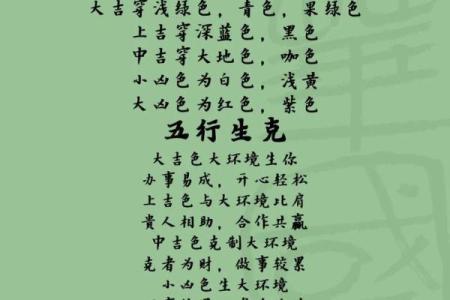 大吉穿浅绿色，青色，果绿色
上吉穿深蓝色，黑色
中吉穿大地色，咖色
小凶色为白色，浅黄
大凶色为红色，紫色
五行生克
大吉色大环境生你
办事易成，开心轻松
上吉色与大环境比肩
貴人相助，合作共赢
中吉色克制大环境
克者为财，做事较累
小凶色生大环境